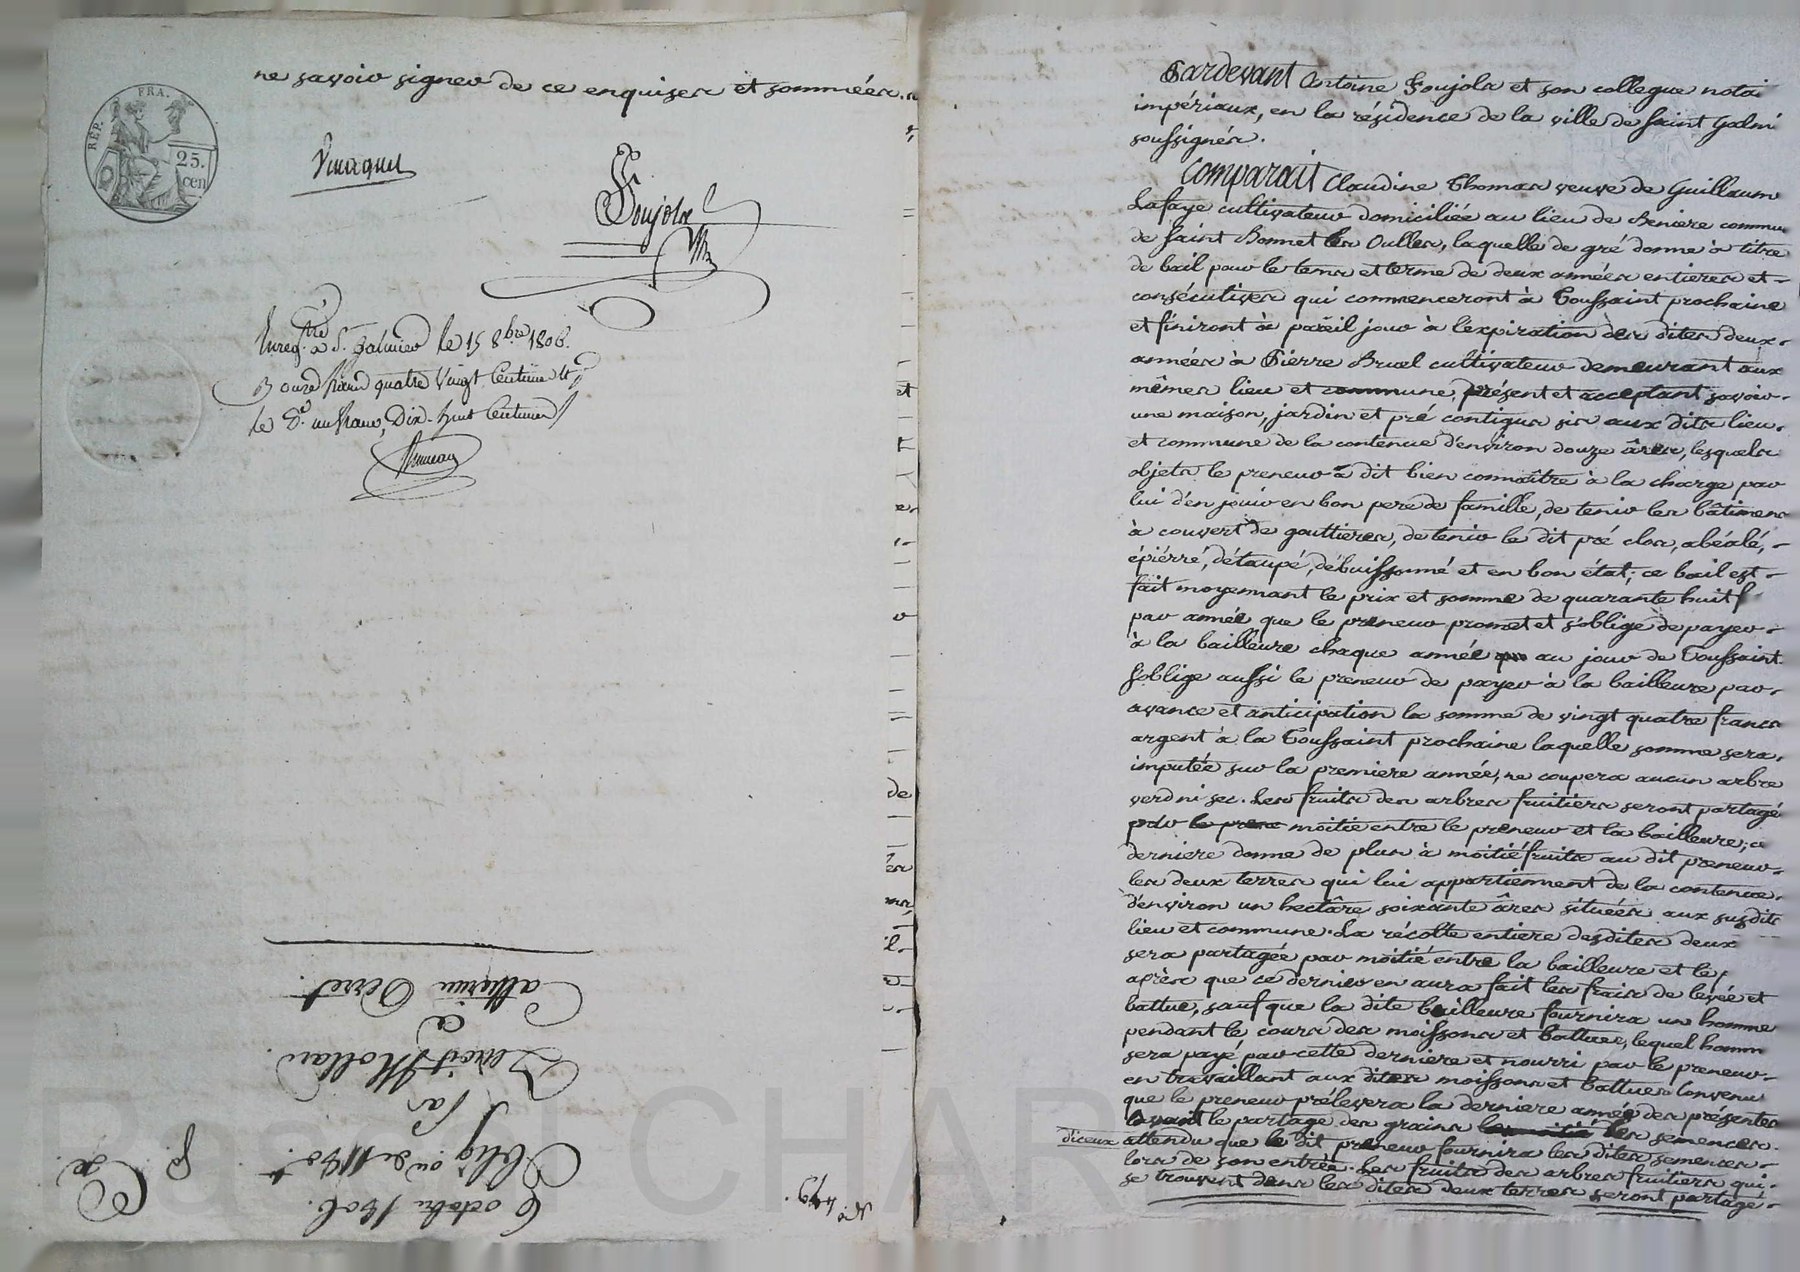 ne savoir signer de ce enquises et sommées.
RÉP. FRA.
25.
cen
Foujols
Enreg.tré à S.t Galmier le 15 8bre 1806.
onze francs quatre vingt Centimes
le D.e un franc, Dix-huit Centimes
6 octobre 1806.
Oblig.on de 1180.#
par
Benoit Mollard
à
Catherine
N.o 479.
Pascal CHAR
Pardevant Antoine Foujols et son collegue notai
impériaux, en la résidence de la ville de Saint Galmi
soussignés.
Comparait Claudine Thomas veuve de Guillaume
Lafaye cultivateur domiciliée au lieu de Beniere commune
de Saint Bonnet les Oulles, laquelle de gré donne à titre
de bail pour le tems et terme de deux années entieres et
consécutives qui commenceront à Toussaint prochaine
et finiront à pareil jour à l'expiration des dites deux
années à Pierre Bruel cultivateur demeurant aux
mêmes lieu et commune, présent et acceptant savoir
une maison, jardin et pré contigus sis aux dits lieu
et commune de la contenue d'environ douze âres, lesquels
objets le preneur à dit bien connaître à la charge par
lui d'en jouir en bon pere de famille, de tenir les bâtimens
à couvert de gouttieres, de tenir le dit pré clos, abéalé,
épiérré, détaupé, débuissonné et en bon état; ce bail est
fait moyennant le prix et somme de quarante huit f
par année que le preneur promet et s'oblige de payer
à la bailleure chaque année au jour de Toussaint.
S'oblige aussi le preneur de payer à la bailleure par
avance et anticipation la somme de vingt quatre francs
argent à la Toussaint prochaine laquelle somme sera
imputée sur la premiere année, ne coupera aucun arbre
verd ni sec. Les fruits des arbres fruitiers seront partagé
par le prene moitié entre le preneur et la bailleure; ce
derniere donne de plus à moitié fruits au dit preneur
les deux terres qui lui appartiennent de la contenue
d'environ un hectâre soixante âres situées aux susdits
lieu et commune. La récolte entiere desdites deux
sera partagée par moitié entre la bailleure et le p
après que ce dernier en aura fait les frais de levée et
battue, sauf que la dite bailleure fournira un homme
pendant le cours des moissons et battues, lequel homm
sera payé par cette derniere et nourri par le preneur
en travaillant aux dites moissons et battues Convenu
que le preneur prélevera la derniere année des présentes
avant le partage des grains les semences
diceux attendu que le dit preneur fournira les dites semences
lors de son entrée. Les fruits des arbres fruitiers qui
se trouvent dans les dites deux terres seront partagé